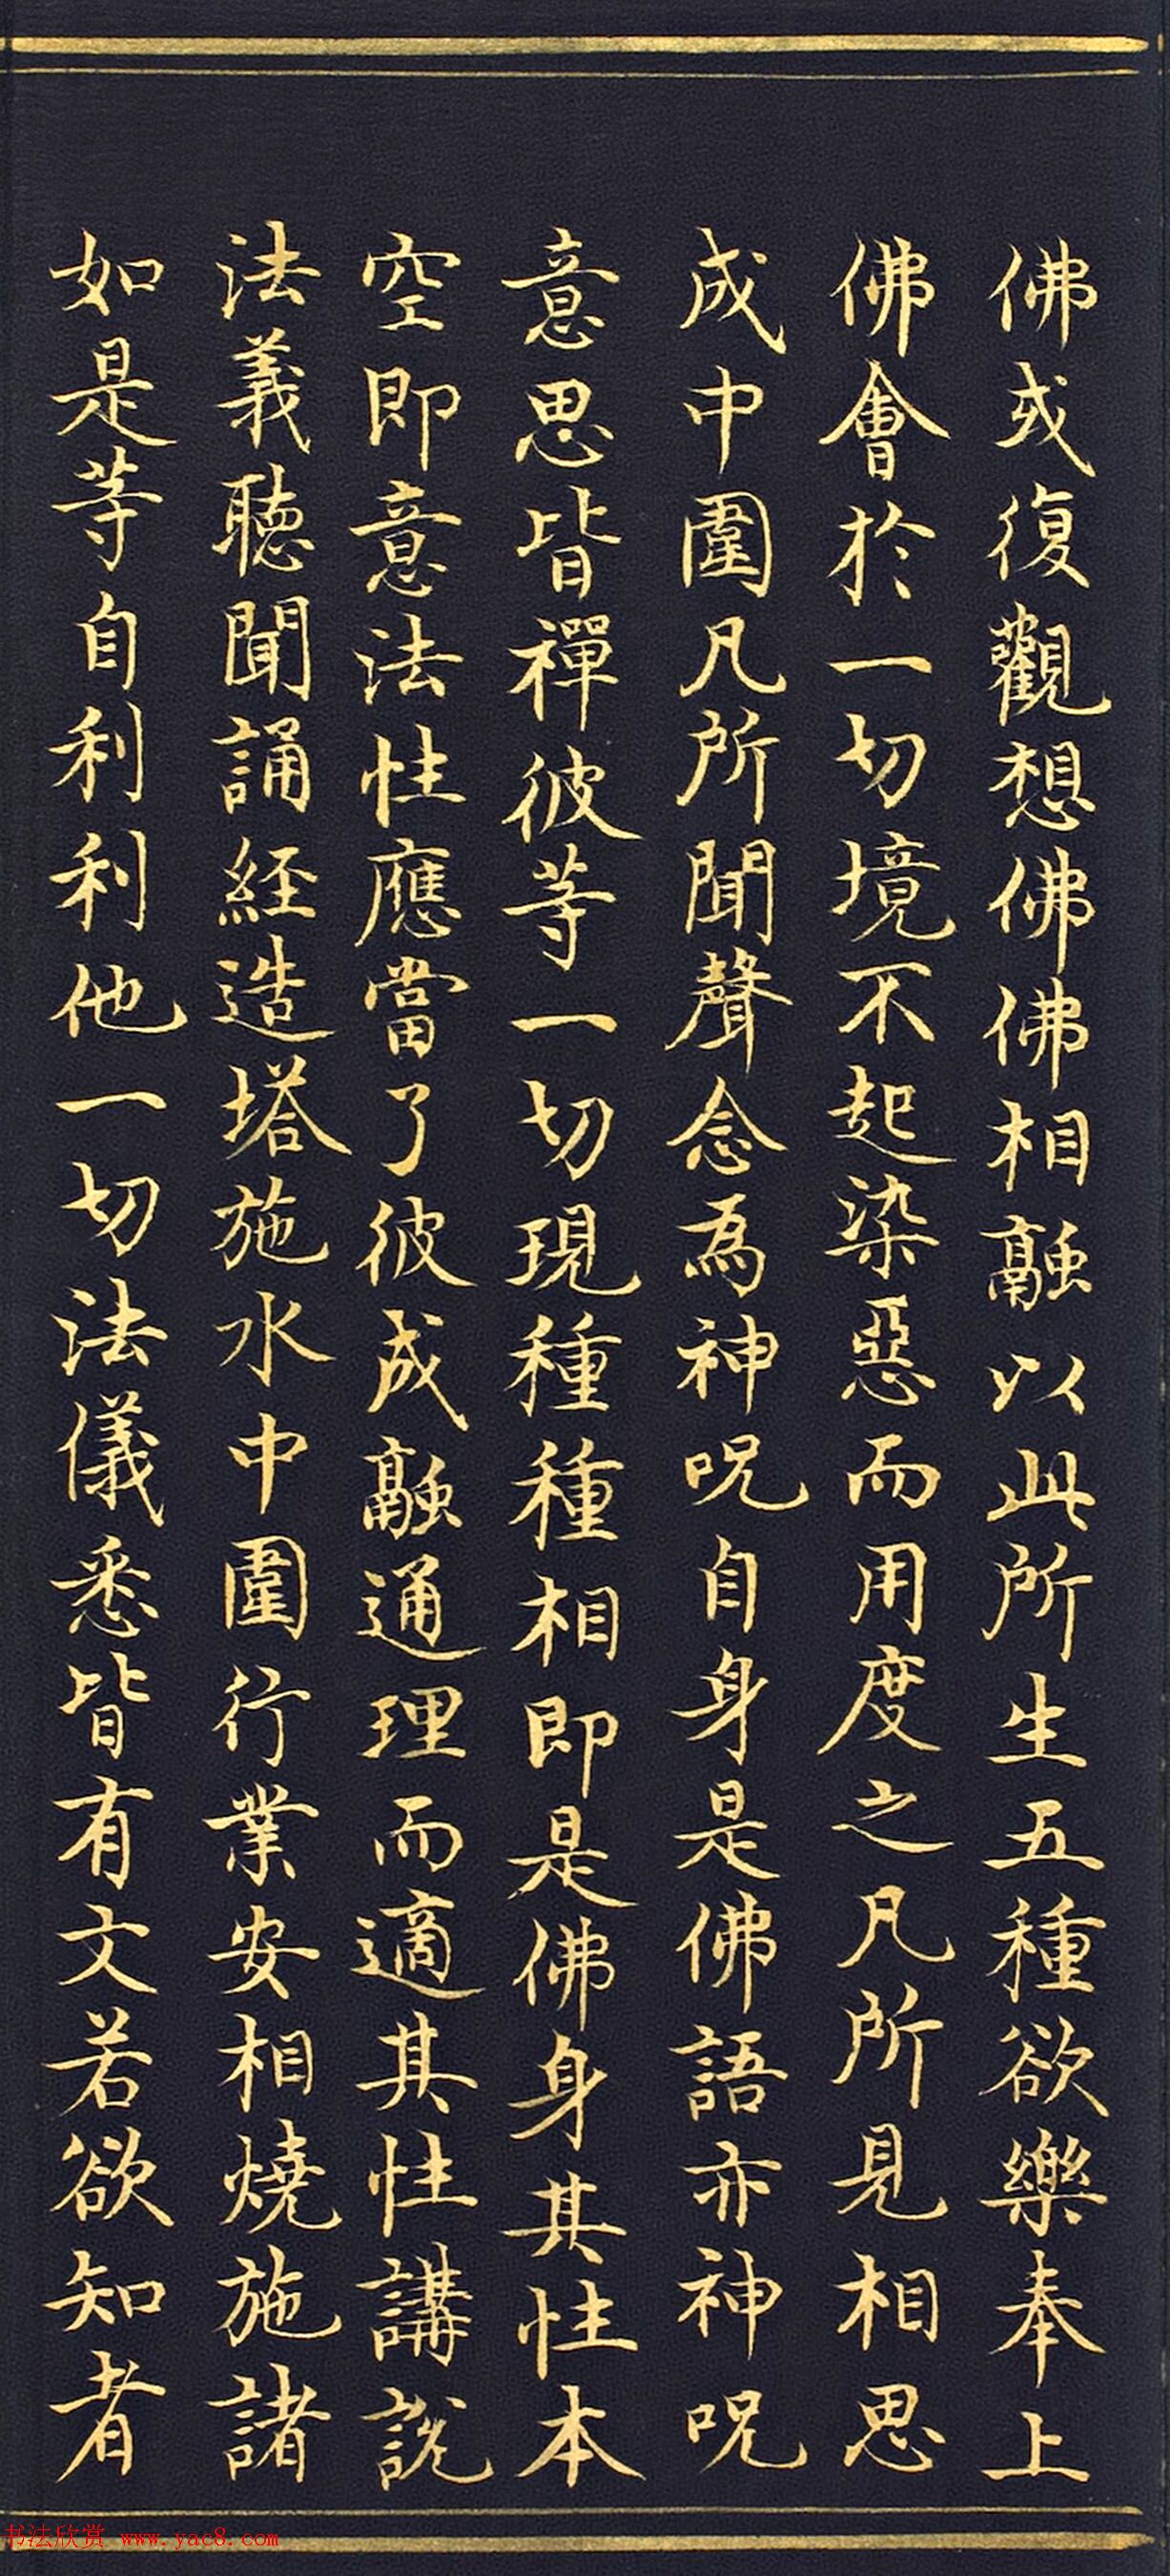 佛或復觀想佛佛相融以此所生五種欲樂奉上
佛會於一切境不起染惡而用度之凡所見相思
成中圍凡所聞聲念為神呪自身是佛語亦神呪
意思皆禪彼等一切現種種相即是佛身其性本
空即意法性應當了彼成融通理而適其性講說
法義聽聞誦経造塔施水中圍行業安相燒施諸
如是等自利利他一切法儀悉皆有文若欲知者
书法欣赏 www.yac8.com